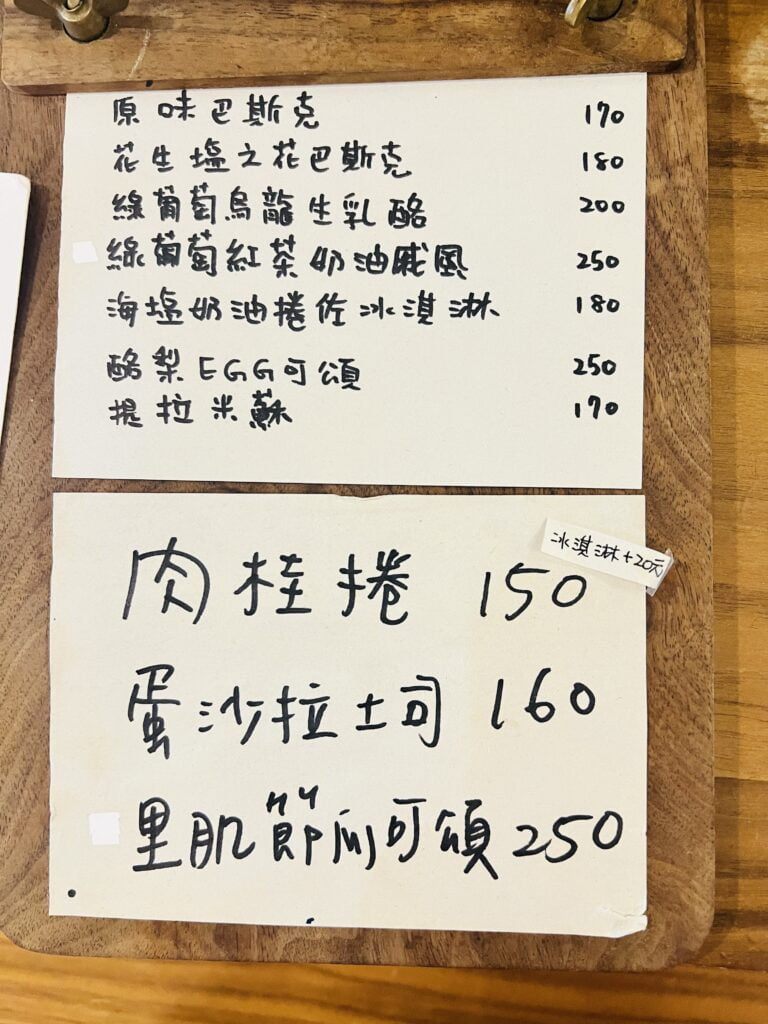 原味巴斯克 170
花生塩之花巴斯克 180
綠葡萄烏龍生乳酪 200
綠葡萄紅茶奶油戚風 250
海塩奶油捲佐冰淇淋 180
酪梨EGG可頌 250
提拉米蘇 170
冰淇淋+20元
肉桂捲 150
蛋沙拉土司 160
里肌節瓜可頌 250